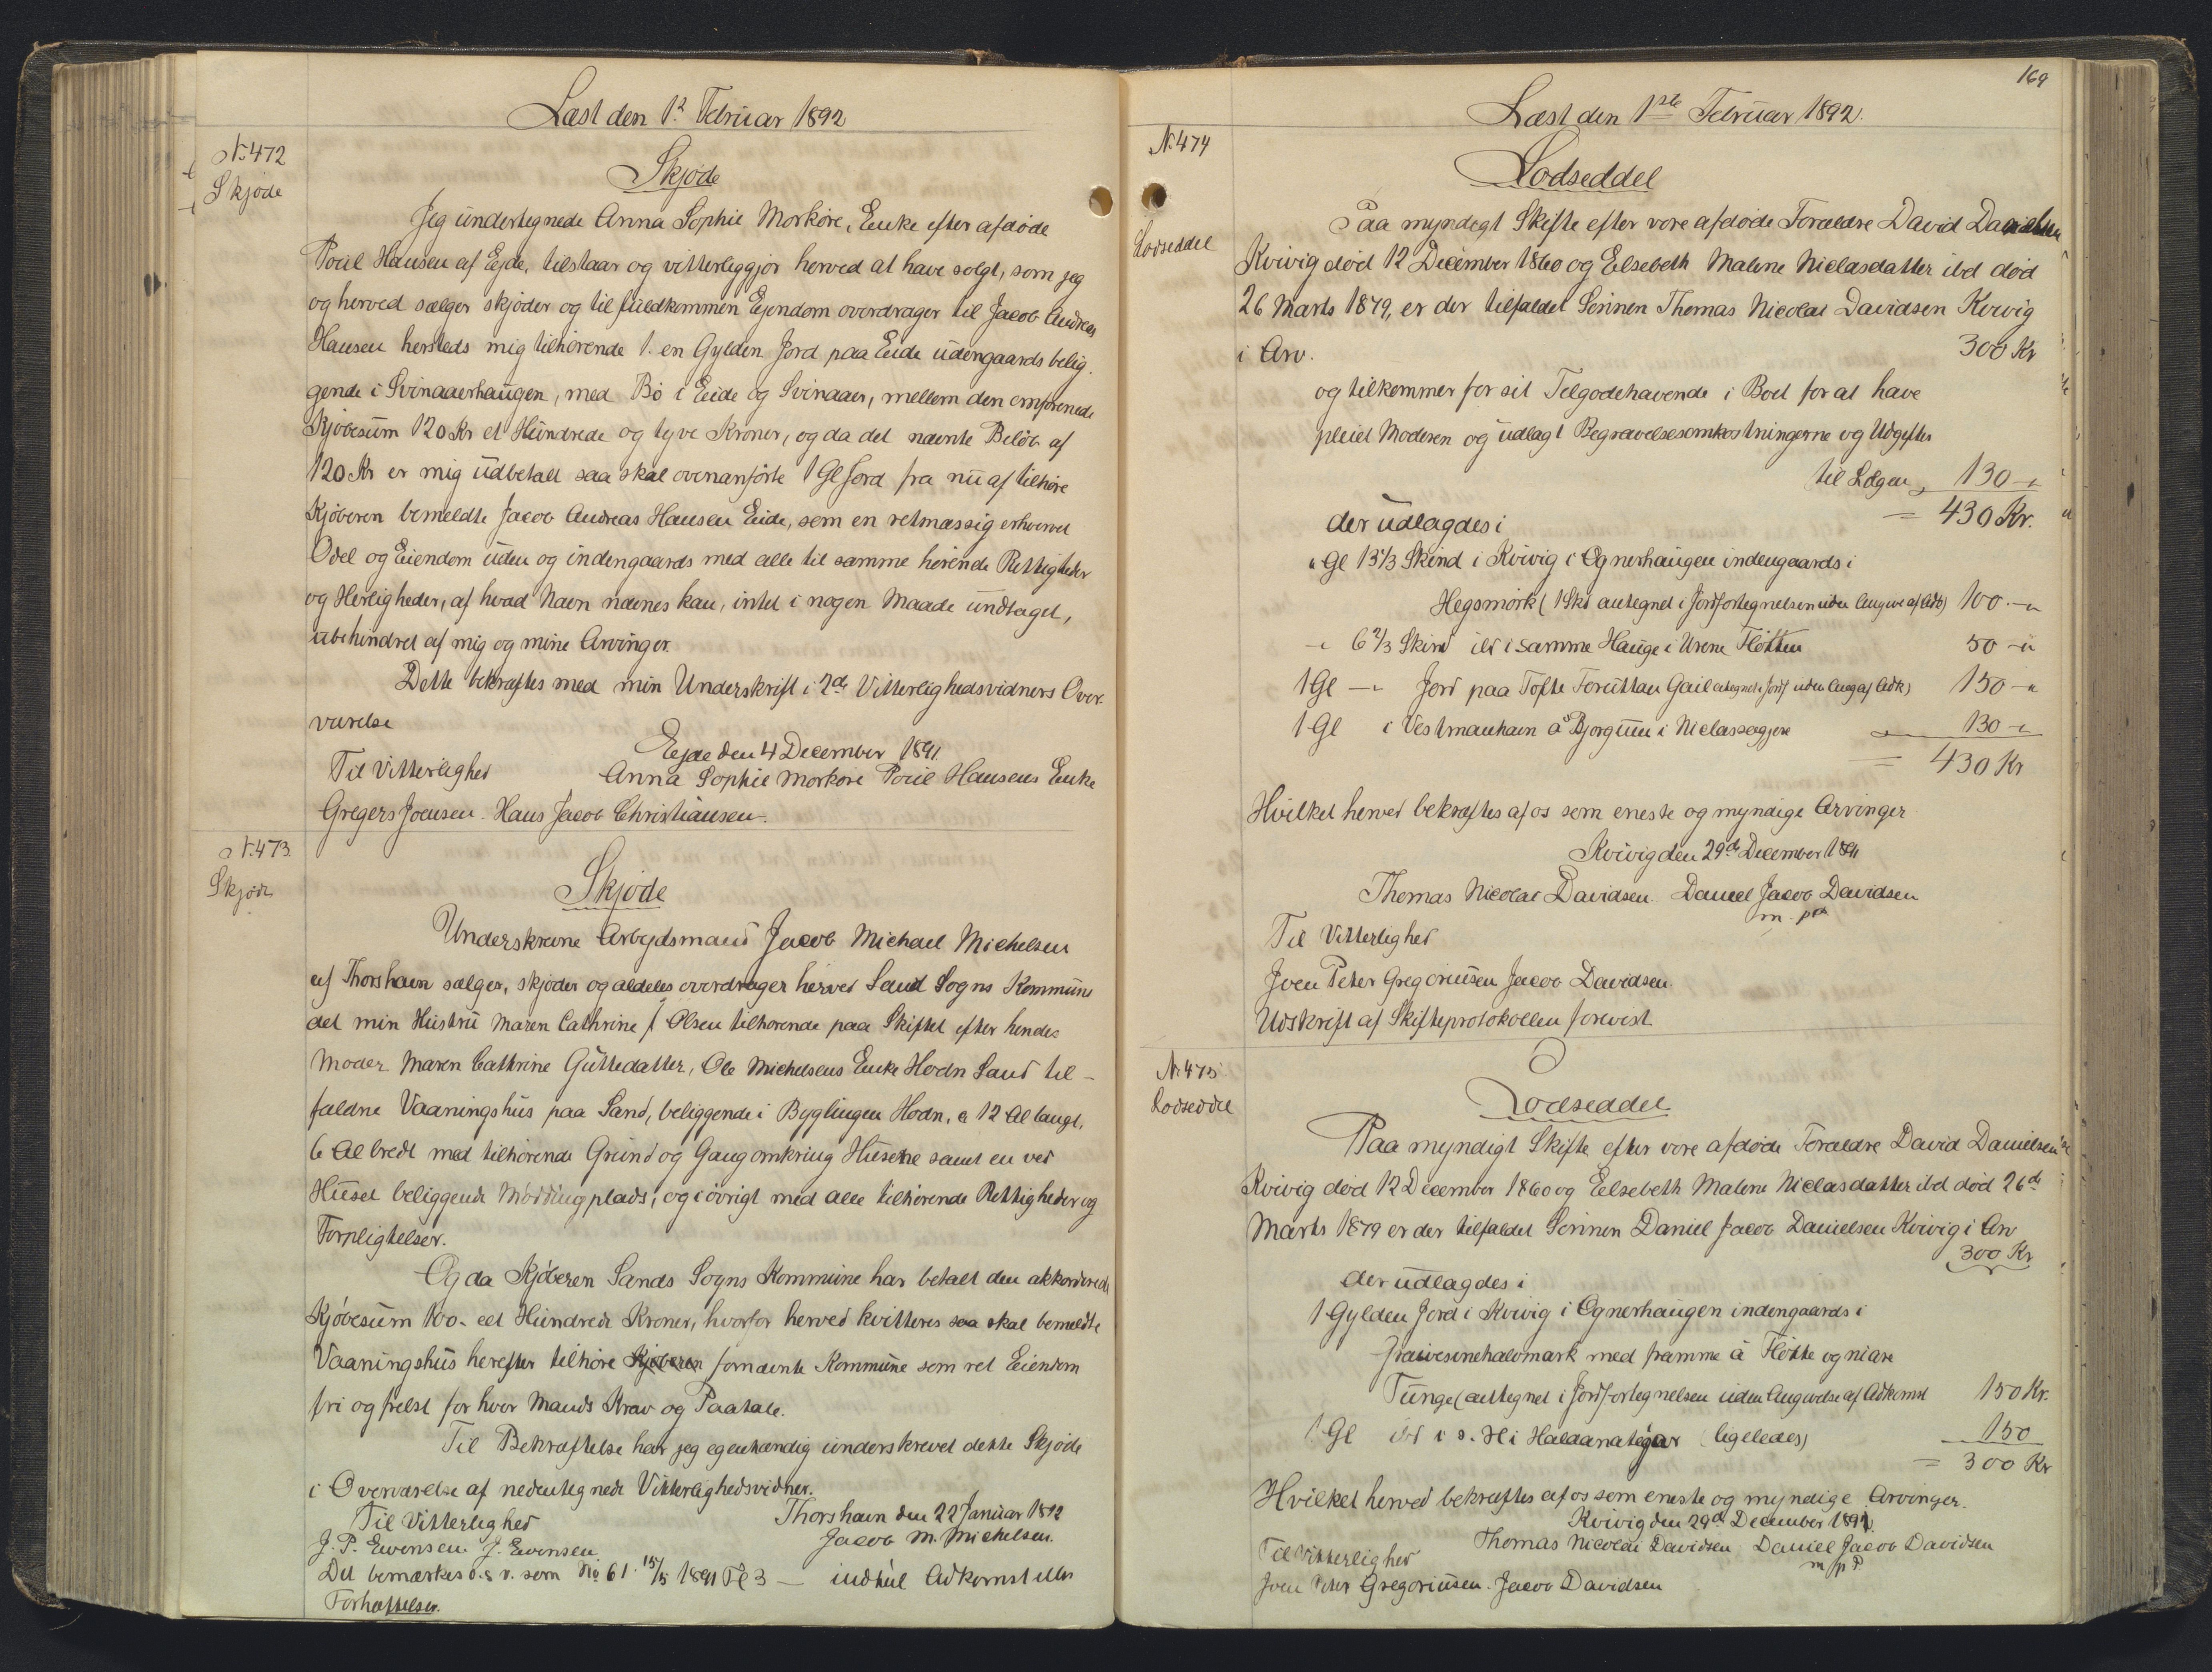 Læst den 1ste Februar 1892
No 472
Skjøde
Skjøde
Jeg undertegnede Anna Sophie Morkøre, Enke efter afdøde
Poül Hansen af Ejde, tilstaar og vitterliggjør herved at have solgt, som jeg
og herved sælger skjøder og til fuldkommen Ejendom overdrager til Jacob Andreas
Hansen hersteds mig tilhørende 1. en Gylden Jord paa Eide üdengaards belig
gende i Svinaaerhaügen, med Bø i Eide og Svinaaer, mellem den omforenede
Kjøbesüm 120 Kr et Hündrede og tyve Kroner, og da det nævnte Beløb af
120 Kr er mig üdbetalt saa skal ovenanførte 1 Gl Jord fra nü af tilhøre
Kjøberen bemeldte Jacob Andreas Hansen Eide, som en retmæssig erhvervet
Odel og Eiendom üden og indengaards med alle til samme hørende Rettigheder
og Herligheder, af hvad Navn nævnes kan, intet i nogen Maade ündtaget,
übehindret af mig og mine Arvinger.
Dette bekræftes med min Underskrift i 2de Vitterlighedsvidners Over-
værelse
Ejde den 4 December 1891.
Til Vitterlighed Anna Sophie Morkøre Poül Hansens Enke
Gregers Joensen. Hans Jacob Christiansen.
No 473.
Skjøde
Skjøde
Underskrevne Arbejdsmand Jacob Michael Michelsen
af Thorshavn sælger, skjøder og aldeles overdrager herved Sand Sogns Kommüne
det min Hüstrü Maren Cathrine f Olsen tilhørende paa Skiftet efter hendes
Moder Maren Cathrine Güttedatter, Ole Michelsens Enke Hodn Sand til-
faldne Vaaningshüs paa Sand, beliggende i Byglingen Hodn, a 12 Al langt,
6 Al bredt med tilhørende Gründ og Gang omkring Hüsene samt en ved
Hüset beliggende Møddingplads, og iøvrigt med alle tilhørende Rettigheder og
Forpligtelser.
Og da Kjøberen Sands Sogns Kommüne har betalt den akkorderede
Kjøbesüm 100 - eet Hündrede Kroner, hvorfor herved kvitteres saa skal bemeldte
Vaaningshüs herefter tilhøre Kjøberen fornævnte Kommüne som ret Eiendom
fri og frelst for hver Mands Krav og Paatale.
Til Bekræftelse har jeg egenhændig ünderskrevet dette Skjøde
i Overværelse af nedentegnede Vitterlighedsvidner.
Thorshavn den 22 Januar 1892
Til Vitterlighed Jacob M. Michelsen.
J. P. Evensen. J. Evensen.
Det bemærkes d.s v. som No 61 15/5 1891 Pl 3 — indhül Adkomst eller
Forhæftelser.
169
Læst den 1ste Februar 1892.
No 474
Lodseddel
Lodseddel
Paa myndigt Skifte efter vore afdøde Forældre David Danielsen
Kvivig død 12 December 1860 og Elsebeth Malene Niclasdatter ibd død
26 Marts 1879, er der tilfaldet Sønnen Thomas Nicolai Davidsen Kvivig
i Arv. 300 Kr
og tilkommer for sit Tilgodehavende i Boet for at have
pleiet Moderen og üdlagt Begravelsesomkostningerne og Udgifter
til Lægen 130 -"
= 430 Kr.
der üdlagdes i
" Gl 13 1/3 Skind i Kvivig i Ognerhaügen indengaards i
Hegsmørk (1 Skd antegnet i Jordfortegnelsen uden Angivelse af Adk) 100 -"
-" 6 2/3 Skind ibd i samme Hauge i Urene Fløtten 50 -"
1 Gl -" Jord paa Tofte Forüttan Gail (antegnet i Jordf uden Ang af Adk) 150 -"
1 Gl i Vestmanhavn å Bjorgüm i Niclassagjære 130 -"
= 430 Kr
Hvilket herved bekræftes af os som eneste og myndige Arvinger
Kvivig den 29de December 1891
Thomas Nicolai Davidsen. Daniel Jacob Davidsen
m. p. P
Til Vitterlighed
Joen Peter Gregoriüsen Jacob Davidsen.
Udskrift af Skifteprotokollen forevist.
No 475
Lodseddel
Lodseddel
Paa myndigt Skifte efter vore afdøde Forældre David Danielsen
Kvivig død 12 December 1860 og Elsebeth Malene Niclasdatter ibd død 26de
Marts 1879 er der tilfaldet Sønnen Daniel Jacob Danielsen Kvivig i Arv
300 Kr
der üdlagdes i
1 Gylden Jord i Kvivig i Ognerhaugen indengaards i
med framme å Fløtte og niare
Tünge (antegnet i Jordfortegnelsen uden Angivelse af Adkomst 150 Kr.
1 Gl ibd i s. H i (ligeledes) 150
= 300 Kr
Hvilket herved bekræftes af os som eneste og myndige Arvinger.
Kvivig den 29de December 1891.
Til Vitterlighed Thomas Nicolai Davidsen Daniel Jacob Davidsen
m p P
Joen Peter Gregoriüsen. Jacob Davidsen